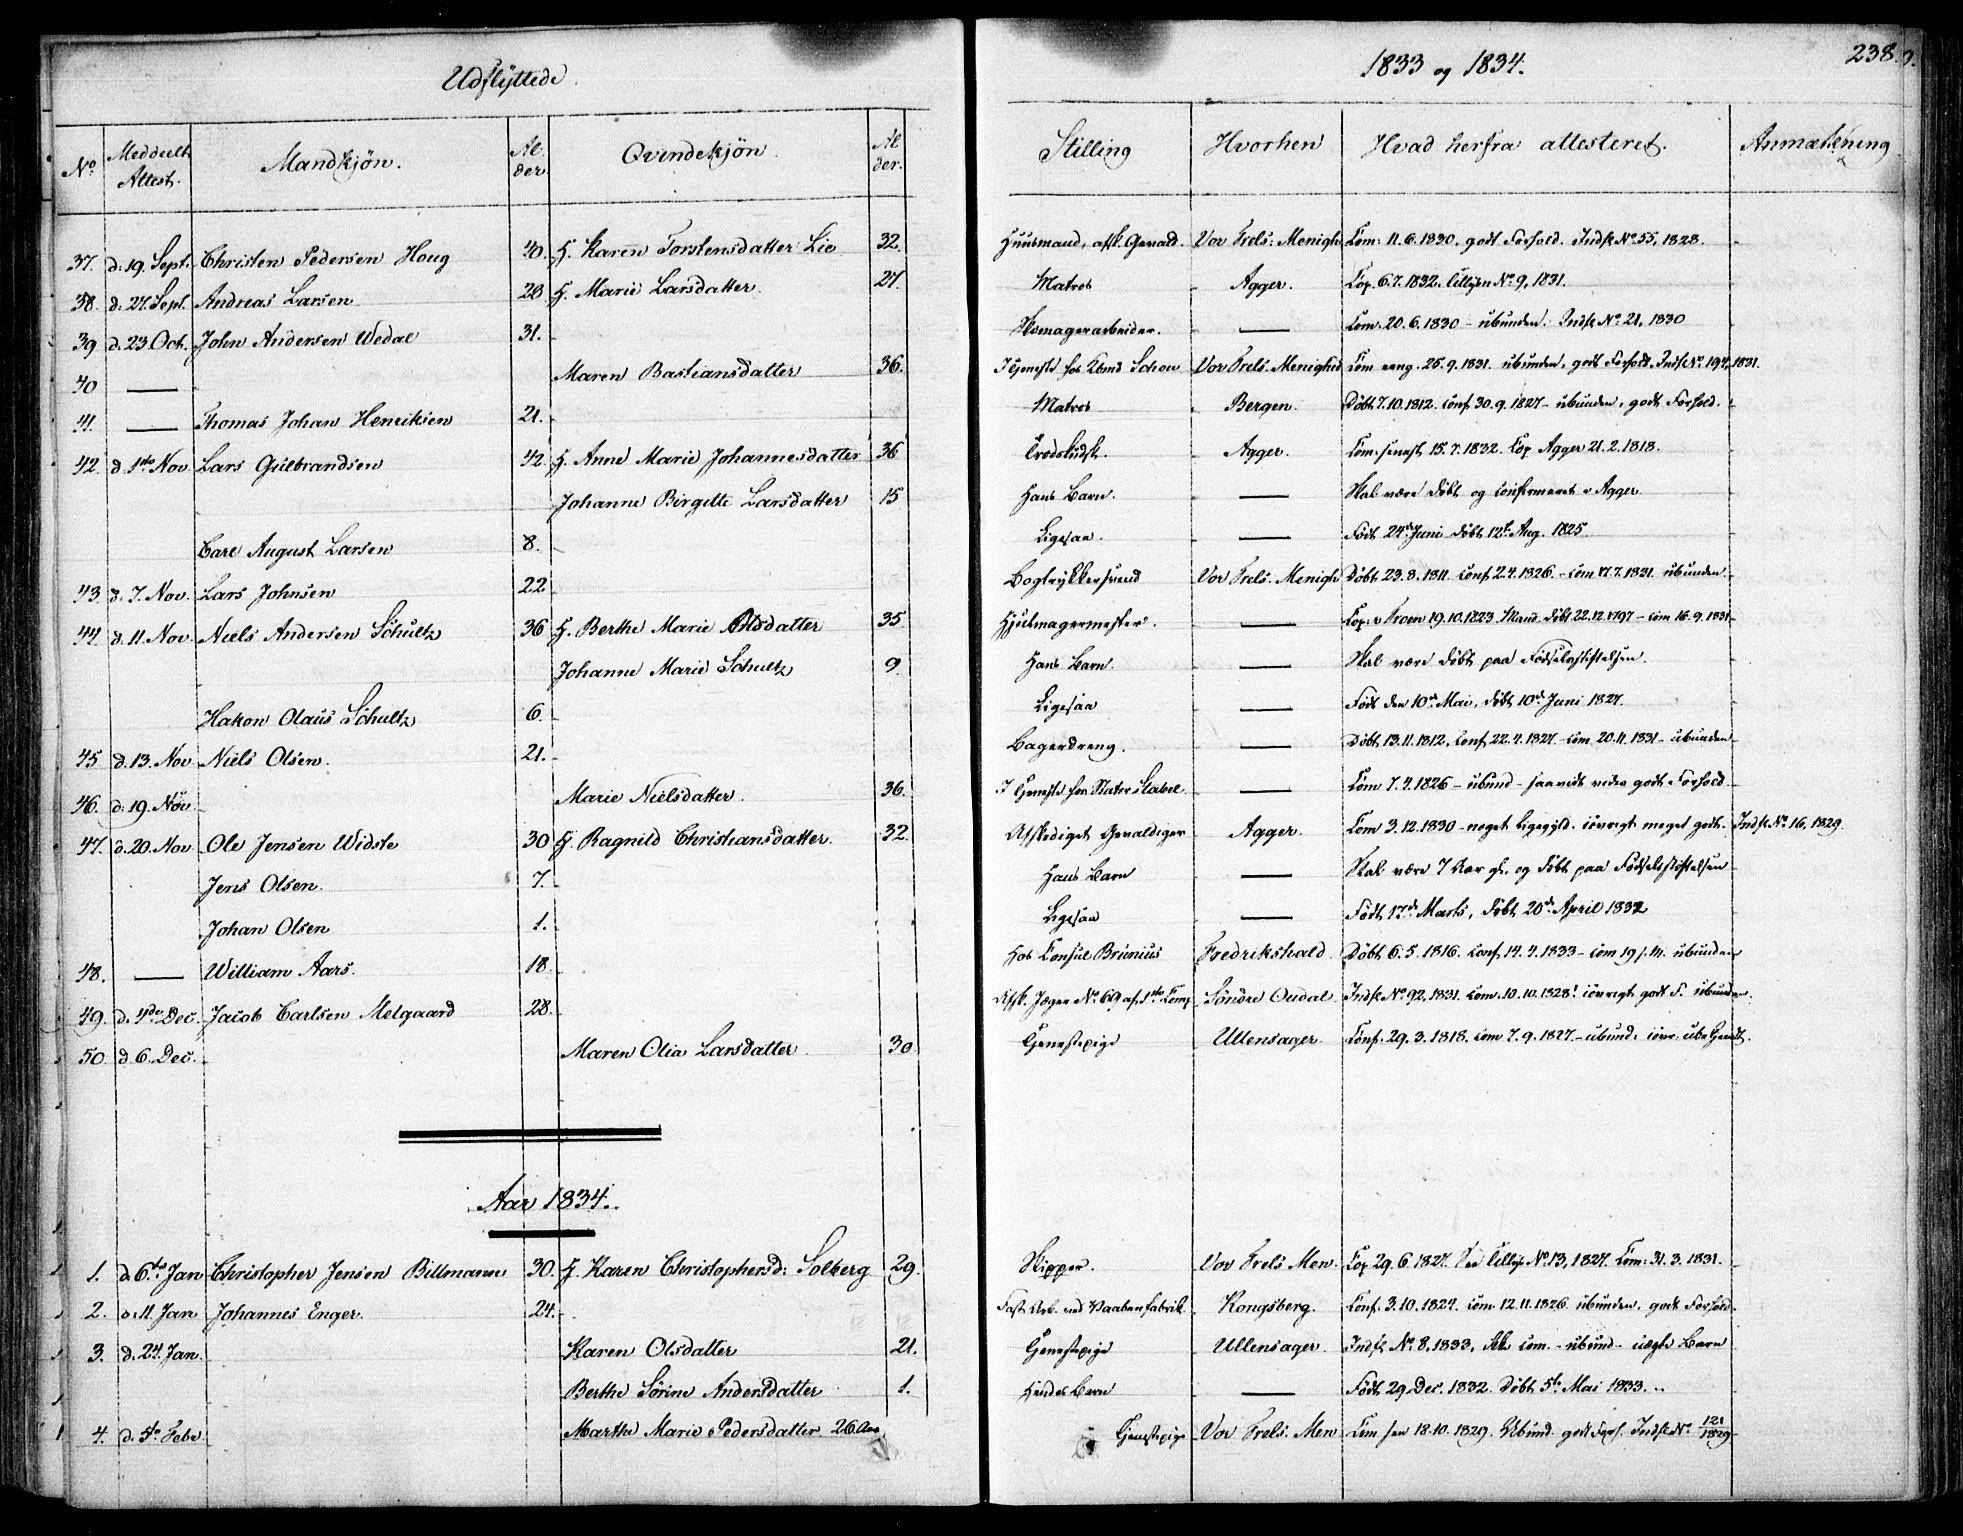 Udflyttede
1833 og 1834.
238.
No Meddeelt Attest. Mandkjøn. Al- der Qvindekjøn. Al der. Stilling Hvorhen Hvad herfra attesteret. Anmærkning
37. d. 19. Sept. Christen Pedersen Houg 40. H. Karen Torstensdatter Lie 32. Huusmand, afsk. Gevald. Vor Frels. Menigh. Com: 11.6.1830, godt Forhold. Indfl. No 55, 1828.
38. d. 27 Sept. Andreas Larsen 28 H. Marie Larsdatter. 27. Matros Agger. Cop. 6.7.1832. No 9, 1831.
39 d. 23 Oct. John Andersen Wedal 31. Skomagerarbeider. — Com. 20.6.1830 - ubunden. Indfl. No 21, 1830
40 — Maren Bastiansdatter 36. I Tjeneste hos Schou Vor Frels. Menighed Com 25.9.1831. ubunden, godt Forhold, Indfl. No 194, 1831.
41. — Thomas Johan Henriksen 21. Matros Bergen. Døbt 7.10.1812. Conf. 30.9.1827 - ubunden, godt Forhold.
42 d. 1ste Nov Lars Gulbrandsen 42 H. Anne Marie Johannesdatter 36 Agger. Com: senest 15.7.1832. Cop Agger 21.2.1818.
Johanne Birgitte Larsdatter 15 Hans Barn. — Skal være døbt og confirmeret i Agger
Carl August Larsen 8. Ligesaa. — Født 24de Juni døbt 12te Aug. 1825
43. d. 7. Nov. Lars Johnsen 22 Bogtrykkersvend Vor Frels. Menigh Døbt 23.8.1811. Conf. 2.4.1826. - Com 17.7.1831. ubunden
44. d. 11. Nov Niels Andersen Schultz 36 H. Berthe Marie Olsdatter 35. Hjulmagermester. — Cop: i Froen 19.10.1823. Mand. døbt 22.12.1797 - Com 16.9.1831
Johanne Marie Schultz 9. Hans Barn. — Skal være døbt paa Fødselsstiftelsen.
Hakon Olaus Schultz 6. Ligesaa — Født den 10de Mai, døbt 10de Juni 1827.
45 d. 13. Nov Niels Olsen. 21. Bagerdreng. — Døbt 13.11.1812, Conf. 22.4.1827 - Com 20.11.1831 - ubunden
46. d. 19. Nov Marie Nielsdatter. 36. I Tjeneste hos — Com 7.4.1826 - ubund - saavidt vides godt Forhold.
47. d. 20. Nov Ole Jensen Widste 30 H. Ragnild Christiansdatter. 32. Afskediget Gevaldiger Agger. Com 3.12.1830 - noget ligegyld. iøvrigt meget godt. Indfl. No 16, 1829.
Jens Olsen. 7. Hans Barn — Skal være 7 Aar gl. og døbt paa Fødselsstiftelsen
Johan Olsen 1. Ligesaa — Født 17de Marts, døbt 20de April 1832
48. — William Aars. 18. Hos Consul Brunius Fredrikshald. Døbt 6.5.1816. Conf. 14.4.1833 - Com 19/ ubunden
49. d. 4de Dec. Jacob Carlsen Melgaard 28. Afsk. Jæger No 69 af 1ste Comp Søndre Oudal. Indfl. No 92, 1831. Com. 10.10.1828! iøvrigt godt F. ubunden.
50. d. 6. Dec. Maren Olia Larsdatter 30. Tjenestepige Ullensager Conf. 29.3.1818. Com 7.9.1827. - ubund.
Aar 1834.
1. d. 6te Jan Christopher Jensen Billmann 30. H. Karen Christophersd: Solberg 29. Skipper. Vor Frels Men. Cop 29.6.1827. No 13, 1827. Com: 31.3.1831.
2. d. 11. Jan Johannes Enger. 24. Fast Arb. ved Vaabenfabrik. Kongsberg. Conf. 3.10.1824. Com 12.11.1826. ubunden, godt Forhold.
3. d. 24. Jan. Karen Olsdatter 21. Tjenestepige Ullensager Indfl. No 8, 1833, Com. - ubund - uægte Barn
Berthe Sørine Andersdatter 1. Hendes Barn — Født 29 Dec. 1832. Døbt 5te Mai 1833.
4. d. 5te Febr Marthe Marie Pedersdatter 26 Aar Tjenestepige Vor Frels. Men Com sen 18.10.1829. Ubund. godt Forh. Indfl. No 121/1829